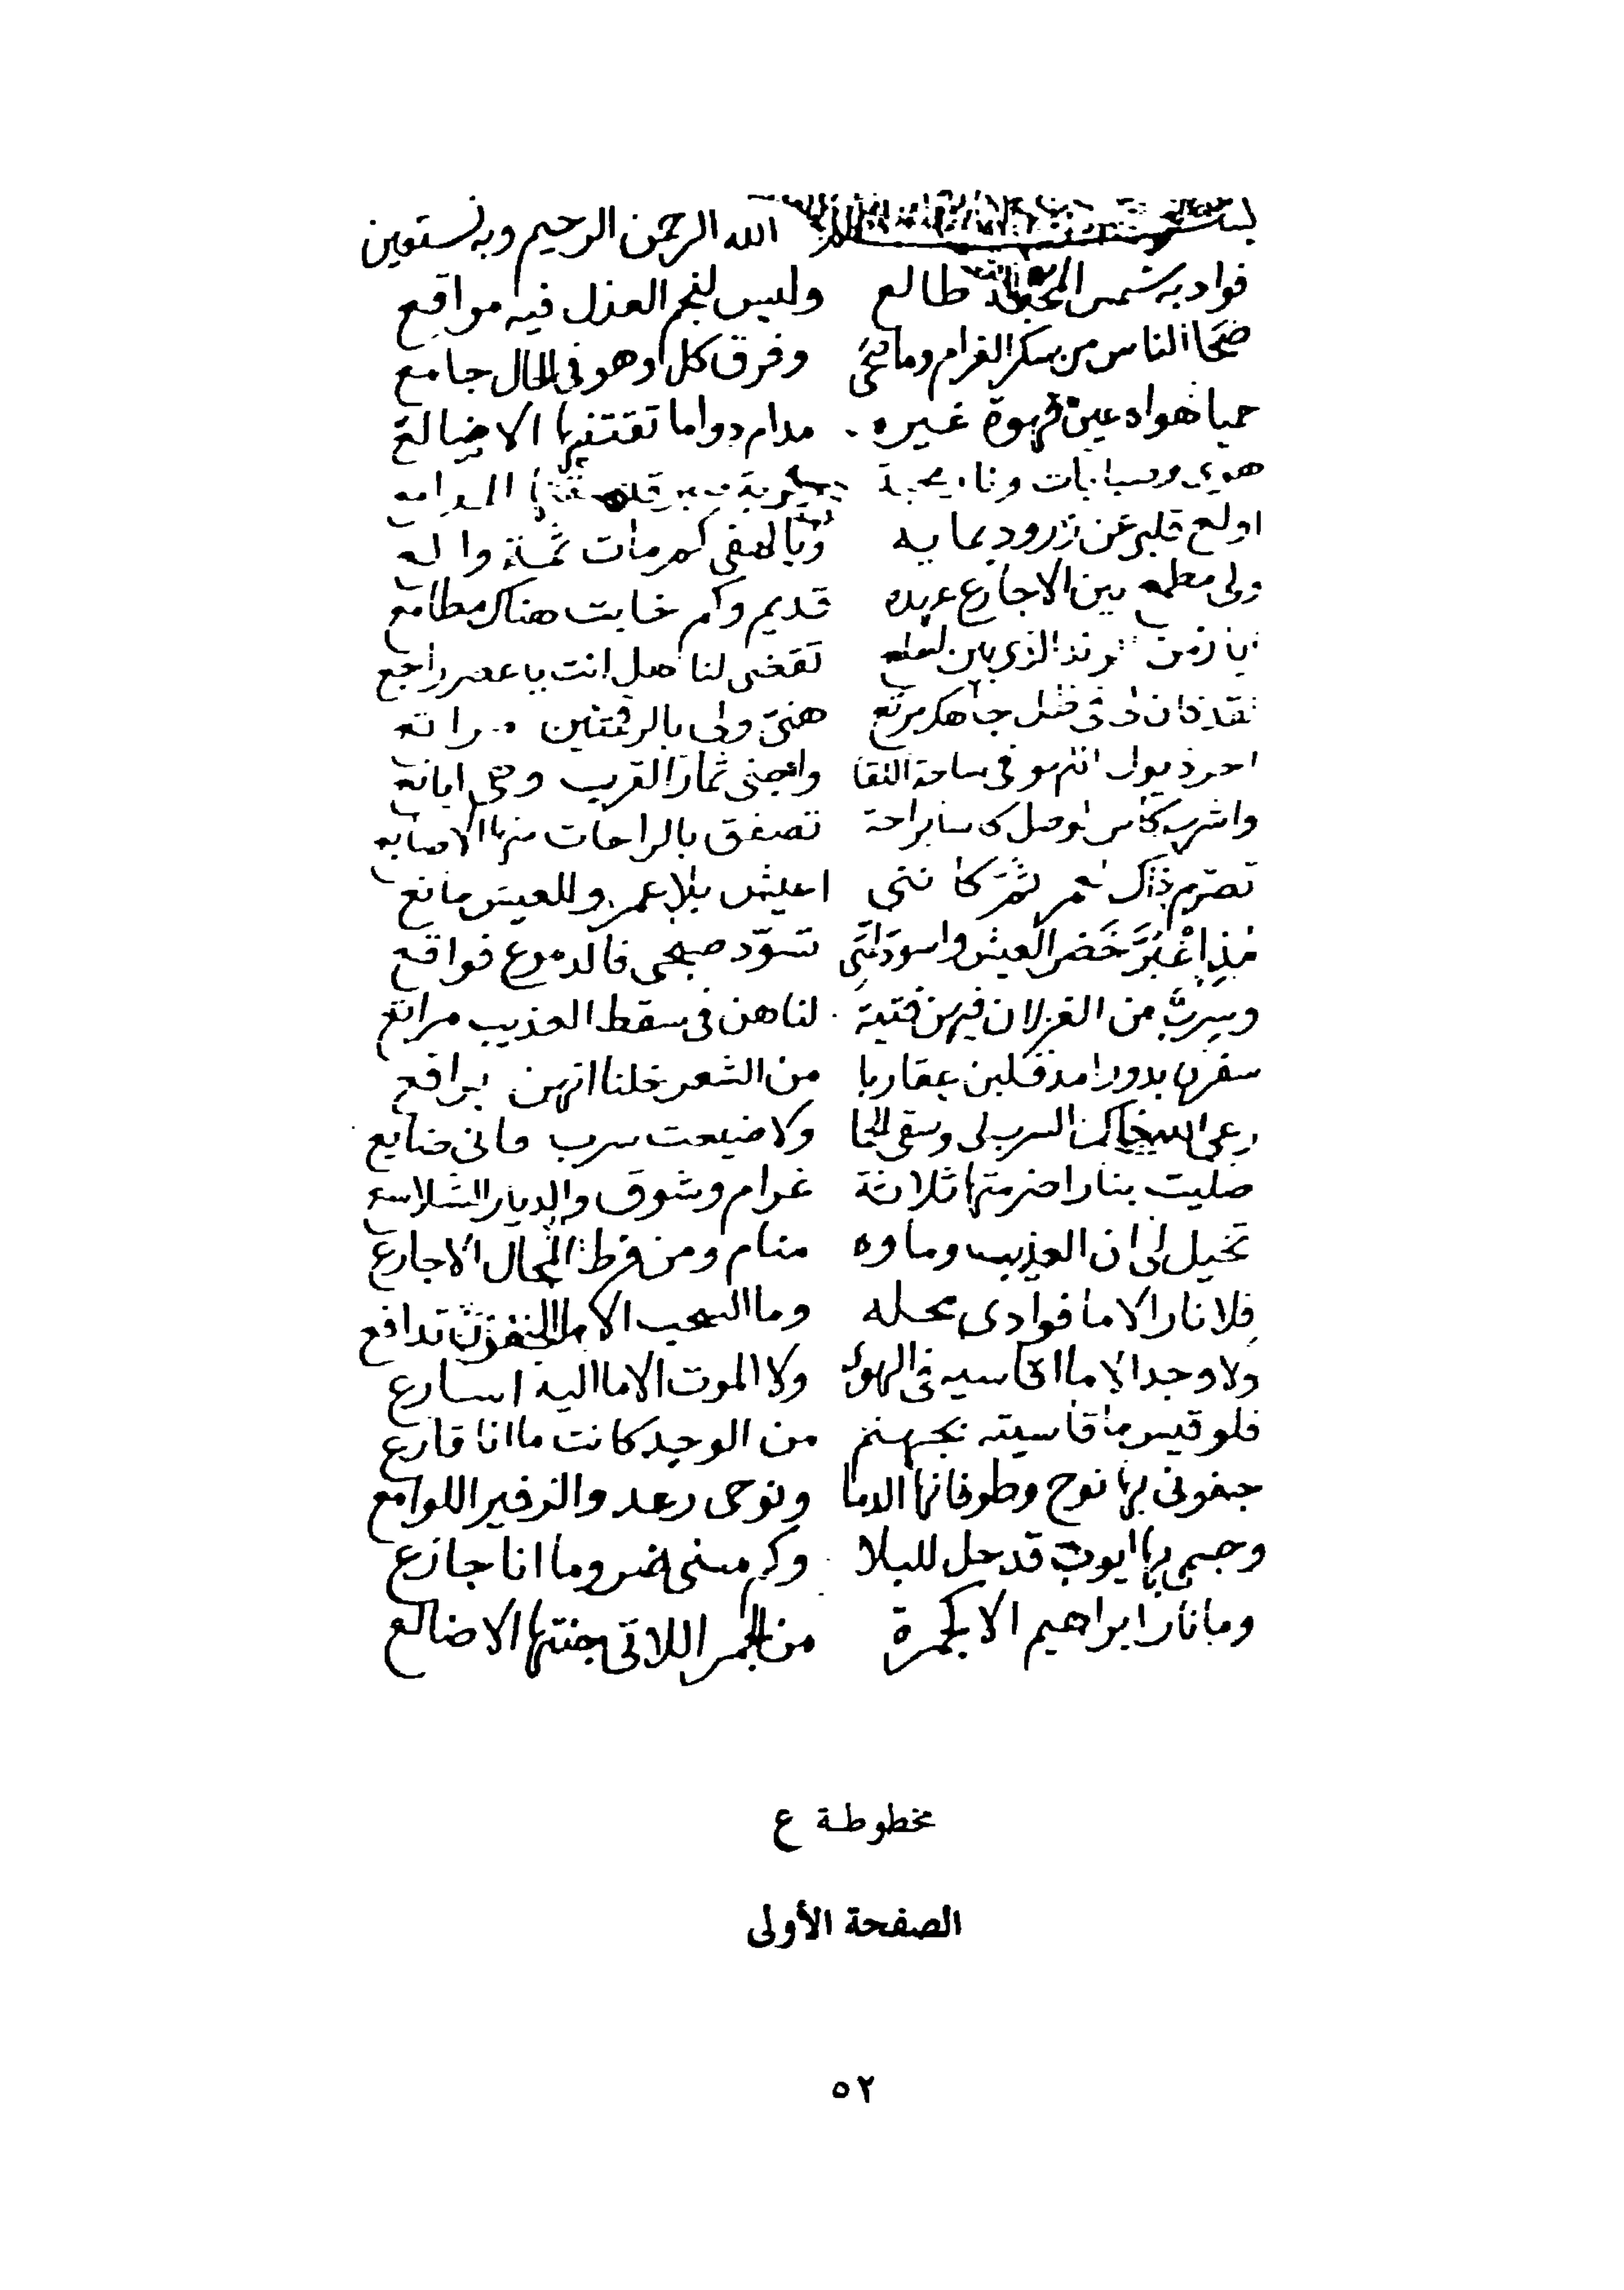 بسم الله الرحمن الرحيم وبه نستعين
فواد به شمس المحبة طالع وليس لنجم العذل فيه مواقع
صحا الناس من سكر الغرام وما صحى وفرق كل وهو في الحال جامع
حميا هواه عين قهوة غيره مدام دواما تقتنيها الاضالع
هوى وصبابات ونار محبة
اولع قلبي عن زرود بمايه ويا لهفي كم مات ثمة والع
ولى مطمع بين الاجارع عهده قديم وكم خابت هناك مطامع
ايا زمن الرند الذي بين لعلع تقضى لنا هل انت يا عصر راجع
لقد كان لى في ظل جاهك مرتع هنى ولى بالرقمتين مراتع
اجر ذيول في ساحة اللقا واجنى ثمار القرب وهى ايانع
واشرب كاس الوصل براحة تصفق بالراحات منها الاصابع
تصرم ذاك العمر كاننى اعيش بلا عمر وللعيش مانع
مذ اغبر خضر العيش واسود لمتى تسود صبحى فالدموع فواقع
وسرب من الغزلان فيهن فتية لنا هن في سقط العذيب مراتع
سفرن بدورا مذ قلبن عقاربا من الشعر خلنا انهن براقع
رعى الله ذاك السرب لى وسقى الحما ولا ضيعت سرب فانى ضايع
صليت بنار اضرمتها ثلاثة غرام وشوق والديار الشلاسع
تخيل لى ان العذيب وماوه منام ومن فرط المحال الاجارع
فلا نار الا ما فوادى محله وما السحب الا ما الجفون تدافع
ولا وجد الا ما اقاسيه في الهوى ولا الموت الا ما اليه اسارع
فلو قيس ما قاسيته بجهنم من الوجد كانت ما انا قارع
جفونى بها نوح وطوفانها الدما ونوحى رعد والزفير اللوامع
وجسمى بها ايوب قد حل للبلا وكم مسنى ضر وما انا جازع
وما نار ابراهيم الا كجمرة من الجمر اللاتى جنتها الاضالع
مخطوطة ع
الصفحة الأولى
٥٢